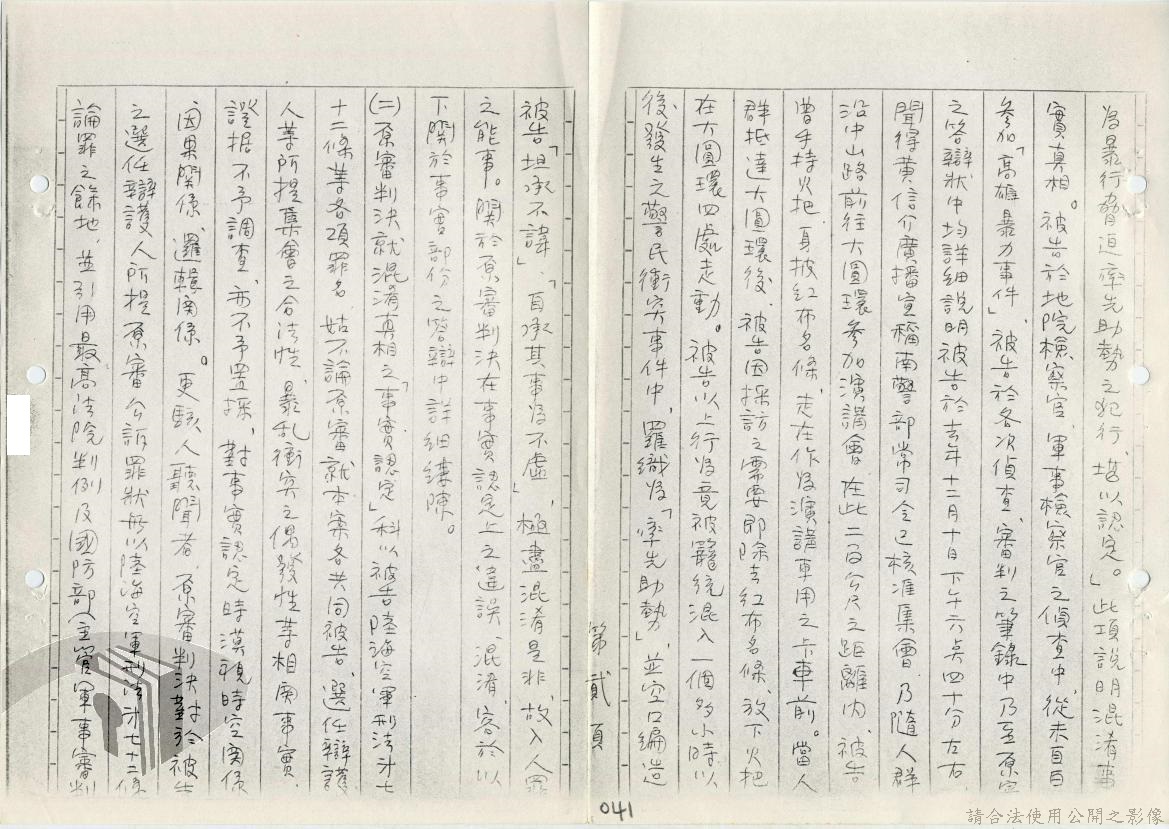 為暴行脅迫率先助勢之犯行，堪以認定。」此項說明混淆事
實真相。被告於地院檢察官、軍事檢察官之偵查中，從未自白
參加「高雄暴力事件」，被告於各次偵查、審判之筆錄中乃至原審
之答辯狀中均詳細說明被告於去年十二月十日下午六點四十分左右
聞得黃信介廣播宣稱南警部常司令已核准集會，乃隨人群
沿中山路前往大圓環參加演講會，在此二百公尺之距離內，被告
曾手持火把，身披紅布名條，走在作為演講車用之卡車前。當人
群抵達大圓環後，被告因採訪之需要即除去紅布名條，放下火把
在大圓環四處走動。被告以上行為竟被籠統混入一個多小時以
後發生之警民衝突事件中，羅織為「率先助勢」，並空口編造
第貳頁
被告「坦承不諱」、「自承其事為不虛」，極盡混淆是非，故入人罪
之能事。關於原審判決在事實認定上之違誤、混淆，容於以
下關於事實部份之答辯中詳細縷陳。
(二)原審判決就混淆真相之「事實認定」科以被告陸海空軍刑法第七
十二條等各項罪名，姑不論原審就本案各共同被告、選任辯護
人等所提集會之合法性、暴亂衝突之偶發性等相關事實、
證據不予調查，而不予置採，對事實認定時漠視時空關係
因果關係、邏輯關係。更駭人聽聞者，原審判決對於被告
之選任辯護人所提原審公訴罪狀無以陸海空軍刑法第七十二條
論罪之餘地，並引用最高法院判例及國防部(主管軍事審判
041
請合法使用公開之影像